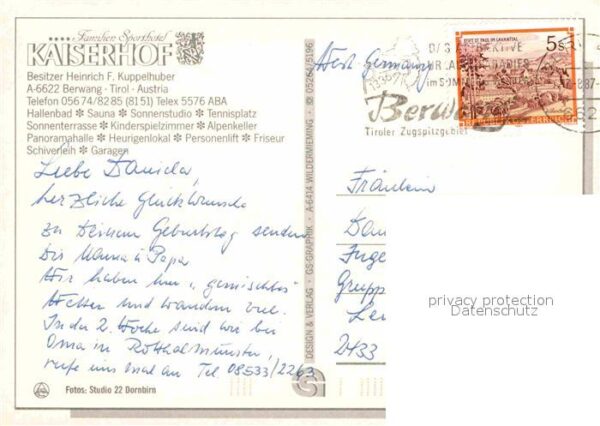 Familien Sporthotel
KAISERHOF
Besitzer Heinrich F. Kuppelhuber
A-6622 Berwang · Tirol · Austria
Telefon 05674/8285 (8151) Telex 5576 ABA
Hallenbad ✽ Sauna ✽ Sonnenstudio ✽ Tennisplatz
Sonnenterrasse ✽ Kinderspielzimmer ✽ Alpenkeller
Panoramahalle ✽ Heurigenlokal ✽ Personenlift ✽ Friseur
Schiverleih ✽ Garagen
Liebe Daniela,
herzliche Glückwünsche
zu Deinem Geburtstag senden
Dir Mama & Papa
Wir haben hier "gemischtes"
Wetter und wandern viel.
In der 2. Woche sind wir bei
Oma in Rotthalmünster,
rufe uns mal an Tel. 08533/2263
Fotos: Studio 22 Dornbirn
DESIGN & VERLAG · GS-GRAPHIK · A-6414 WILDERMIEMING · 05264/5196
West Germany
STIFT ST. PAUL IM LAVANTTAL
5 S
REPUBLIK ÖSTERREICH
1336 m
im SOMMER
Berwang
Tiroler Zugspitzgebiet
Fräulein
Dan
Inge
Grupp
Le
2433
privacy protection
Datenschutz